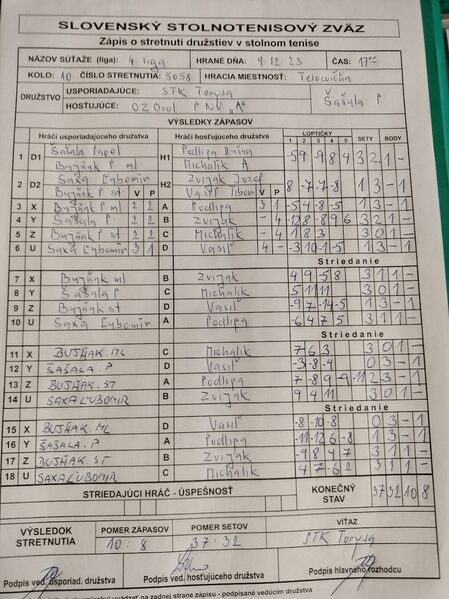 SLOVENSKÝ STOLNOTENISOVÝ ZVÄZ
Zápis o stretnutí družstiev v stolnom tenise
NÁZOV SÚŤAŽE (liga): 4. liga HRANÉ DŇA: 9.12.23 ČAS: 17
KOLO: 10 ČÍSLO STRETNUTIA: 5058 HRACIA MIESTNOSŤ: Telocvičňa
DRUŽSTVO USPORIADAJÚCE: STK Torysa Šašala P
HOSŤUJÚCE: OZ Orol PNV "A"
VÝSLEDKY ZÁPASOV
Hráči usporiadajúceho družstva Hráči hosťujúceho družstva LOPTIČKY SETY BODY
1 2 3 4 5
1 D1 Šašala H1 Podlipa Dušan -5 9 -9 8 4 3 2 1 -
Bujňák P ml Michalik A
2 D2 Saxa Ľubomír H2 Zvijak Jozef 8 -7 -7 -8 1 3 - 1
Bujňák P st V P Vasiľ Tibor V P
3 X Bujňák P ml 2 2 A Podlipa 3 1 -5 4 -8 -5 1 3 - 1
4 Y Šašala P 2 2 B Zvijak - 4 -12 8 -8 9 6 3 2 1 -
5 Z Bujňák P st 2 2 C Michalik - 4 1 8 3 3 0 1 -
6 U Saxa Ľubomír 3 1 D Vasiľ 4 - -3 10 -1 -5 1 3 - 1
Striedanie
7 X Bujňák ml B Zvijak 4 9 -5 8 3 1 1 -
8 Y Šašala P C Michalik 5 11 11 3 0 1 -
9 Z Bujňák st D Vasiľ -9 7 -14 -5 1 3 - 1
10 U Saxa Ľubomír A Podlipa -6 4 7 5 3 1 1 -
Striedanie
11 X BUJŇAK. ML C Michalik 7 6 3 3 0 1 -
12 Y ŠAŠALA. P D Vasiľ -3 -8 -4 0 3 - 1
13 Z BUJŇAK. ST A Podlipa 7 -8 9 -9 -11 2 3 - 1
14 U SAXA ĽUBOMIR B Zvijak 9 4 11 3 0 1 -
Striedanie
15 X BUJŇAK. ML D Vasiľ -8 -10 -8 0 3 - 1
16 Y ŠAŠALA. P A Podlipa -11 -12 6 -8 1 3 - 1
17 Z BUJŇAK. ST B Zvijak -9 8 4 7 3 1 1 -
18 U SAXA ĽUBOMIR C Michalik 4 -7 6 2 3 1 1 -
STRIEDAJÚCI HRÁČ - ÚSPEŠNOSŤ KONEČNÝ STAV 37 32 10 8
VÝSLEDOK STRETNUTIA POMER ZÁPASOV POMER SETOV VÍŤAZ
10 : 8 37 : 32 STK Torysa
Podpis ved. usporiad. družstva Podpis ved. hosťujúceho družstva Podpis hlavného rozhodcu